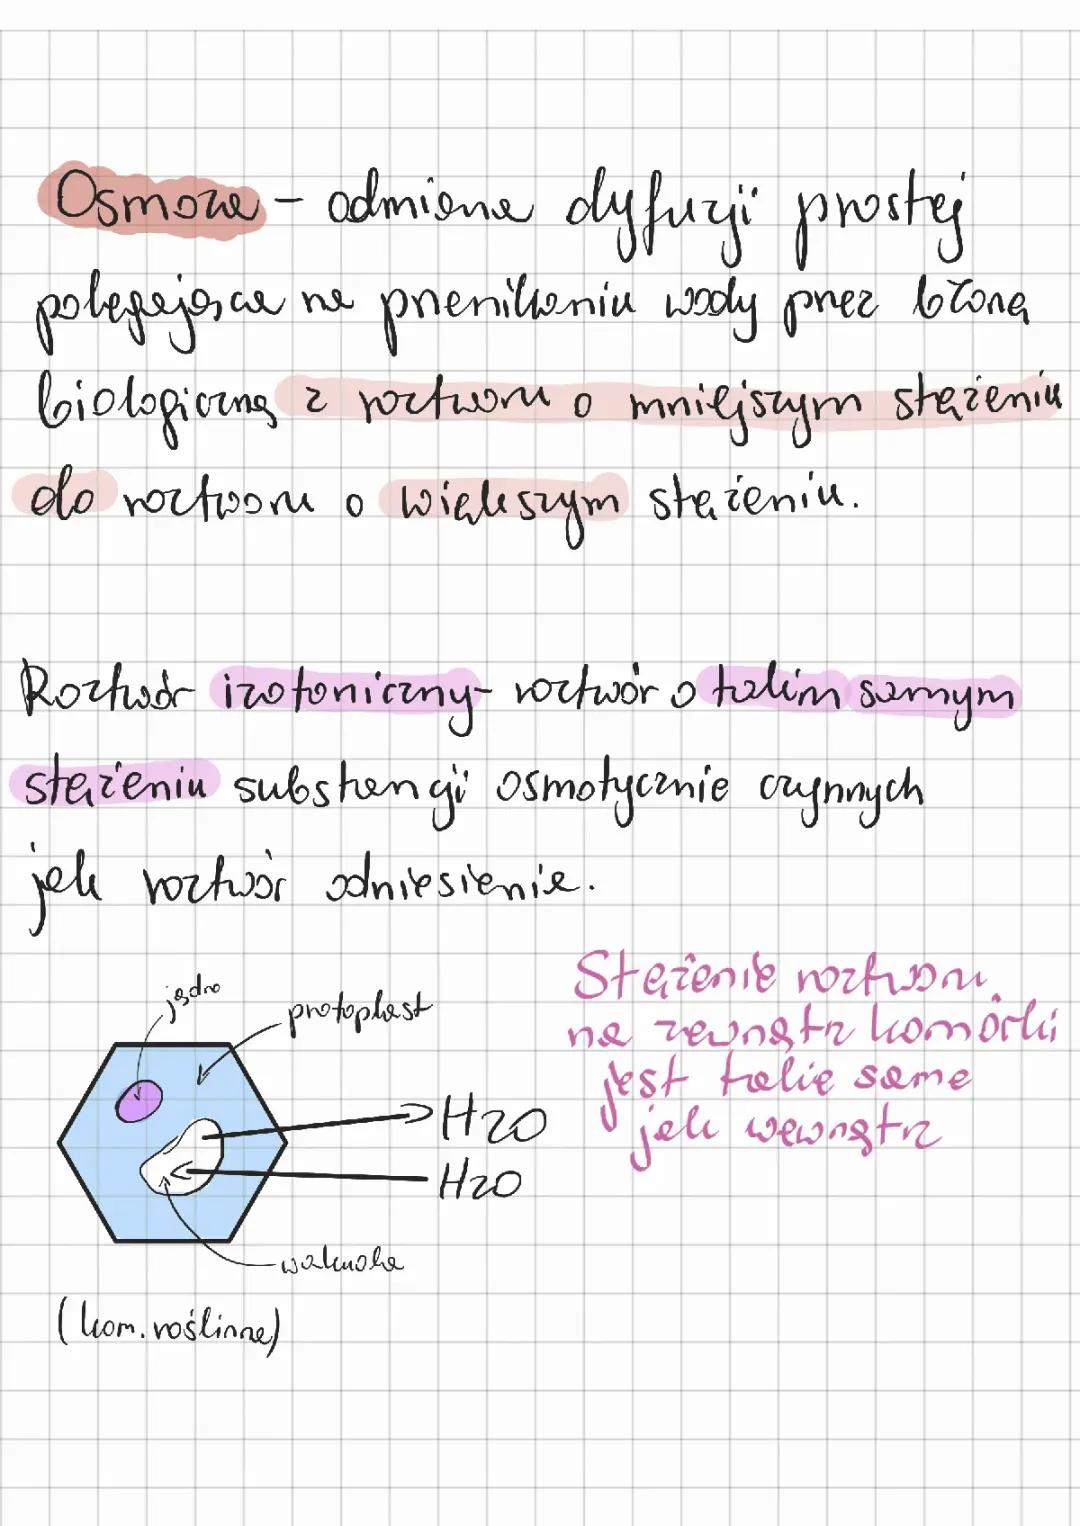 Osmoza - odmiana dyfuzji prostej
polegająca na przenikaniu wody przez błonę
biologiczną z roztworu o mniejszym stężeniu
do roztworu o większym stężeniu.
Roztwór izotoniczny - roztwór o takim samym
stężeniu substancji osmotycznie czynnych
jak roztwór odniesienie.
jądro
protoplast
Stężenie roztworu
na zewnątrz komórki
jest takie same
jak wewnątrz
H2O
H2O
wakuola
(kom. roślinna)